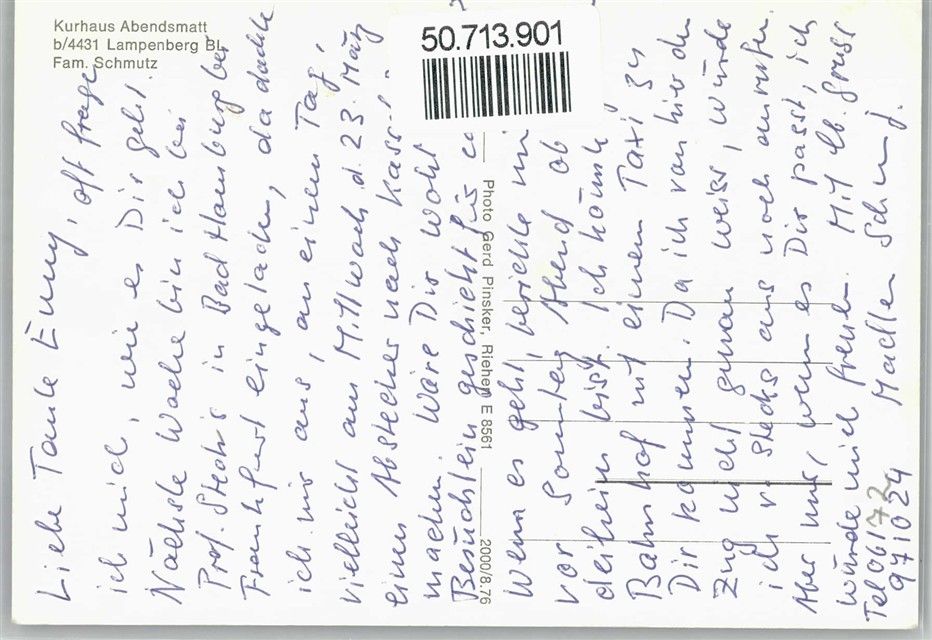 Kurhaus Abendsmatt
b/4431 Lampenberg BL
Fam. Schmutz
50.713.901
Photo Gerd Pinsker, Riehen E 8561
2000/8.76
Liebe Tante Emmy, oft frage
ich mich, wie es Dir geht.
Nächste Woche bin ich bei
Prof. Stechs in Bad Homburg bei
Frankfurt eingeladen, da dachte
ich mir aus, an einem Tag,
vielleicht am Mittwoch, d. 23. März
einen Abstecher nach Kass
machen. Wäre Dir wohl
Besüchlein geschickt für
Wenn es geht, berichte
vor Sonntag Abend ob
daheim bist. Ich könnte
Bahnhof mit einem Taxi zu
Dir kommen. Da ich von hier den
Zug nicht genau weiss, würde
ich v. Stechs aus noch anrufen.
Aber nur, wenn es Dir passt, ich
würde mich freuen. Mit lb. Gruss
Tel 06172
971024 Madlen Schmj.